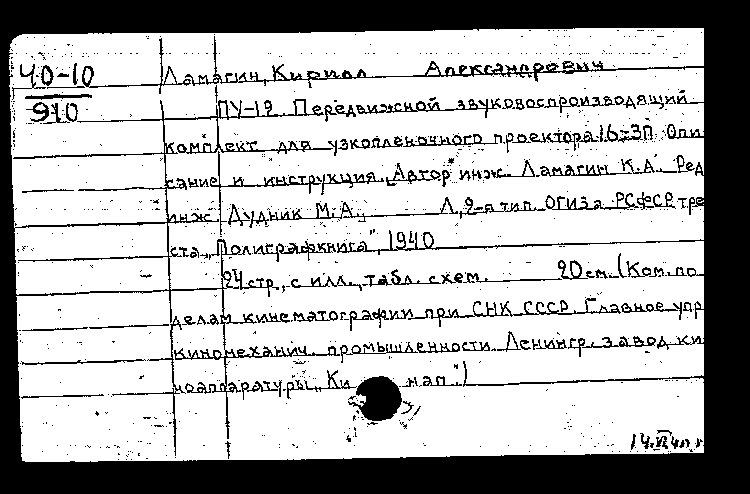 40-10
910
Ламагин, Кирилл Александрович
ПУ-12. Передвижной звуковоспроизводящий
комплект для узкопленочного проектора 16-ЗП. Опи
сание и инструкция. „Автор" инж. Ламагин К.А. Ред
инж Дудник М.А., Л, 2-я тип. ОГИЗа РСФСР, тре
ста „Полиграфкнига", 1940
24 стр., с илл., табл. схем. 20 см. (Ком. по
делам кинематографии при СНК СССР. Главное упр
киномеханич. промышленности. Ленингр. завод ки
ноаппаратуры „Ки нап".)